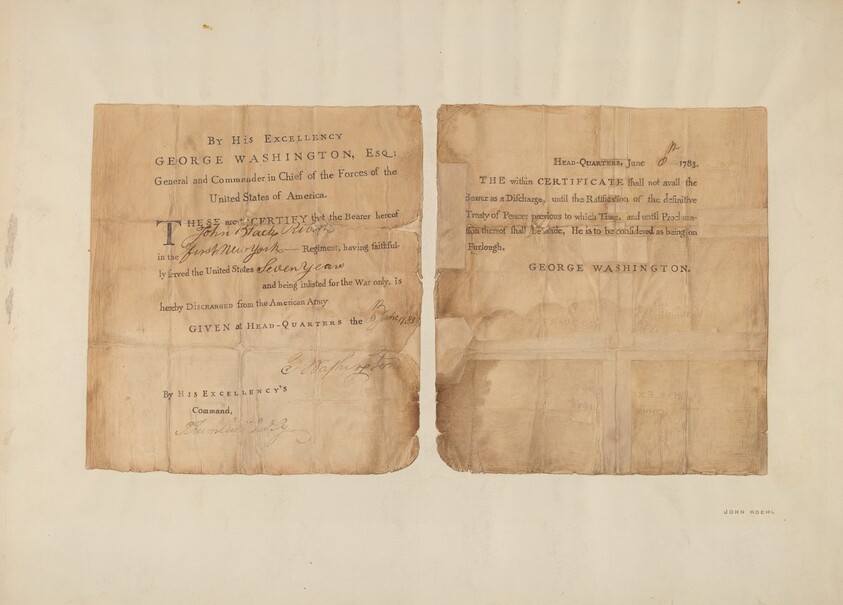 By His Excellency
GEORGE WASHINGTON, Esq;
General and Commander in Chief of the Forces of the
United States of America.
THESE are to CERTIFY that the Bearer hereof
John
in the first New York Regiment, having faithful-
ly served the United States Seven Years
and being inlisted for the War only, is
hereby Discharged from the American Army
GIVEN at Head-Quarters the
G Washington
By His Excellency's
Command,
Head-Quarters, June 8th 1783.
THE within CERTIFICATE shall not avail the
Bearer as a Discharge, until the Ratification of the definitive
Treaty of Peace; previous to which Time, and until Proclama-
tion thereof shall be made, He is to be considered as being on
Furlough.
GEORGE WASHINGTON.
JOHN ROEHL